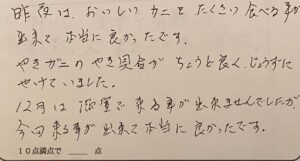 昨夜は、おいしいカニをたくさん食べる事が
出来て、本当に良かったです。
やきガニのやき具合がちょうど良く、じょうずに
やけていました。
12月は 満室で 来る事が出来ませんでしたが、
今回来る事が出来て本当に良かったです。
10点満点で 点